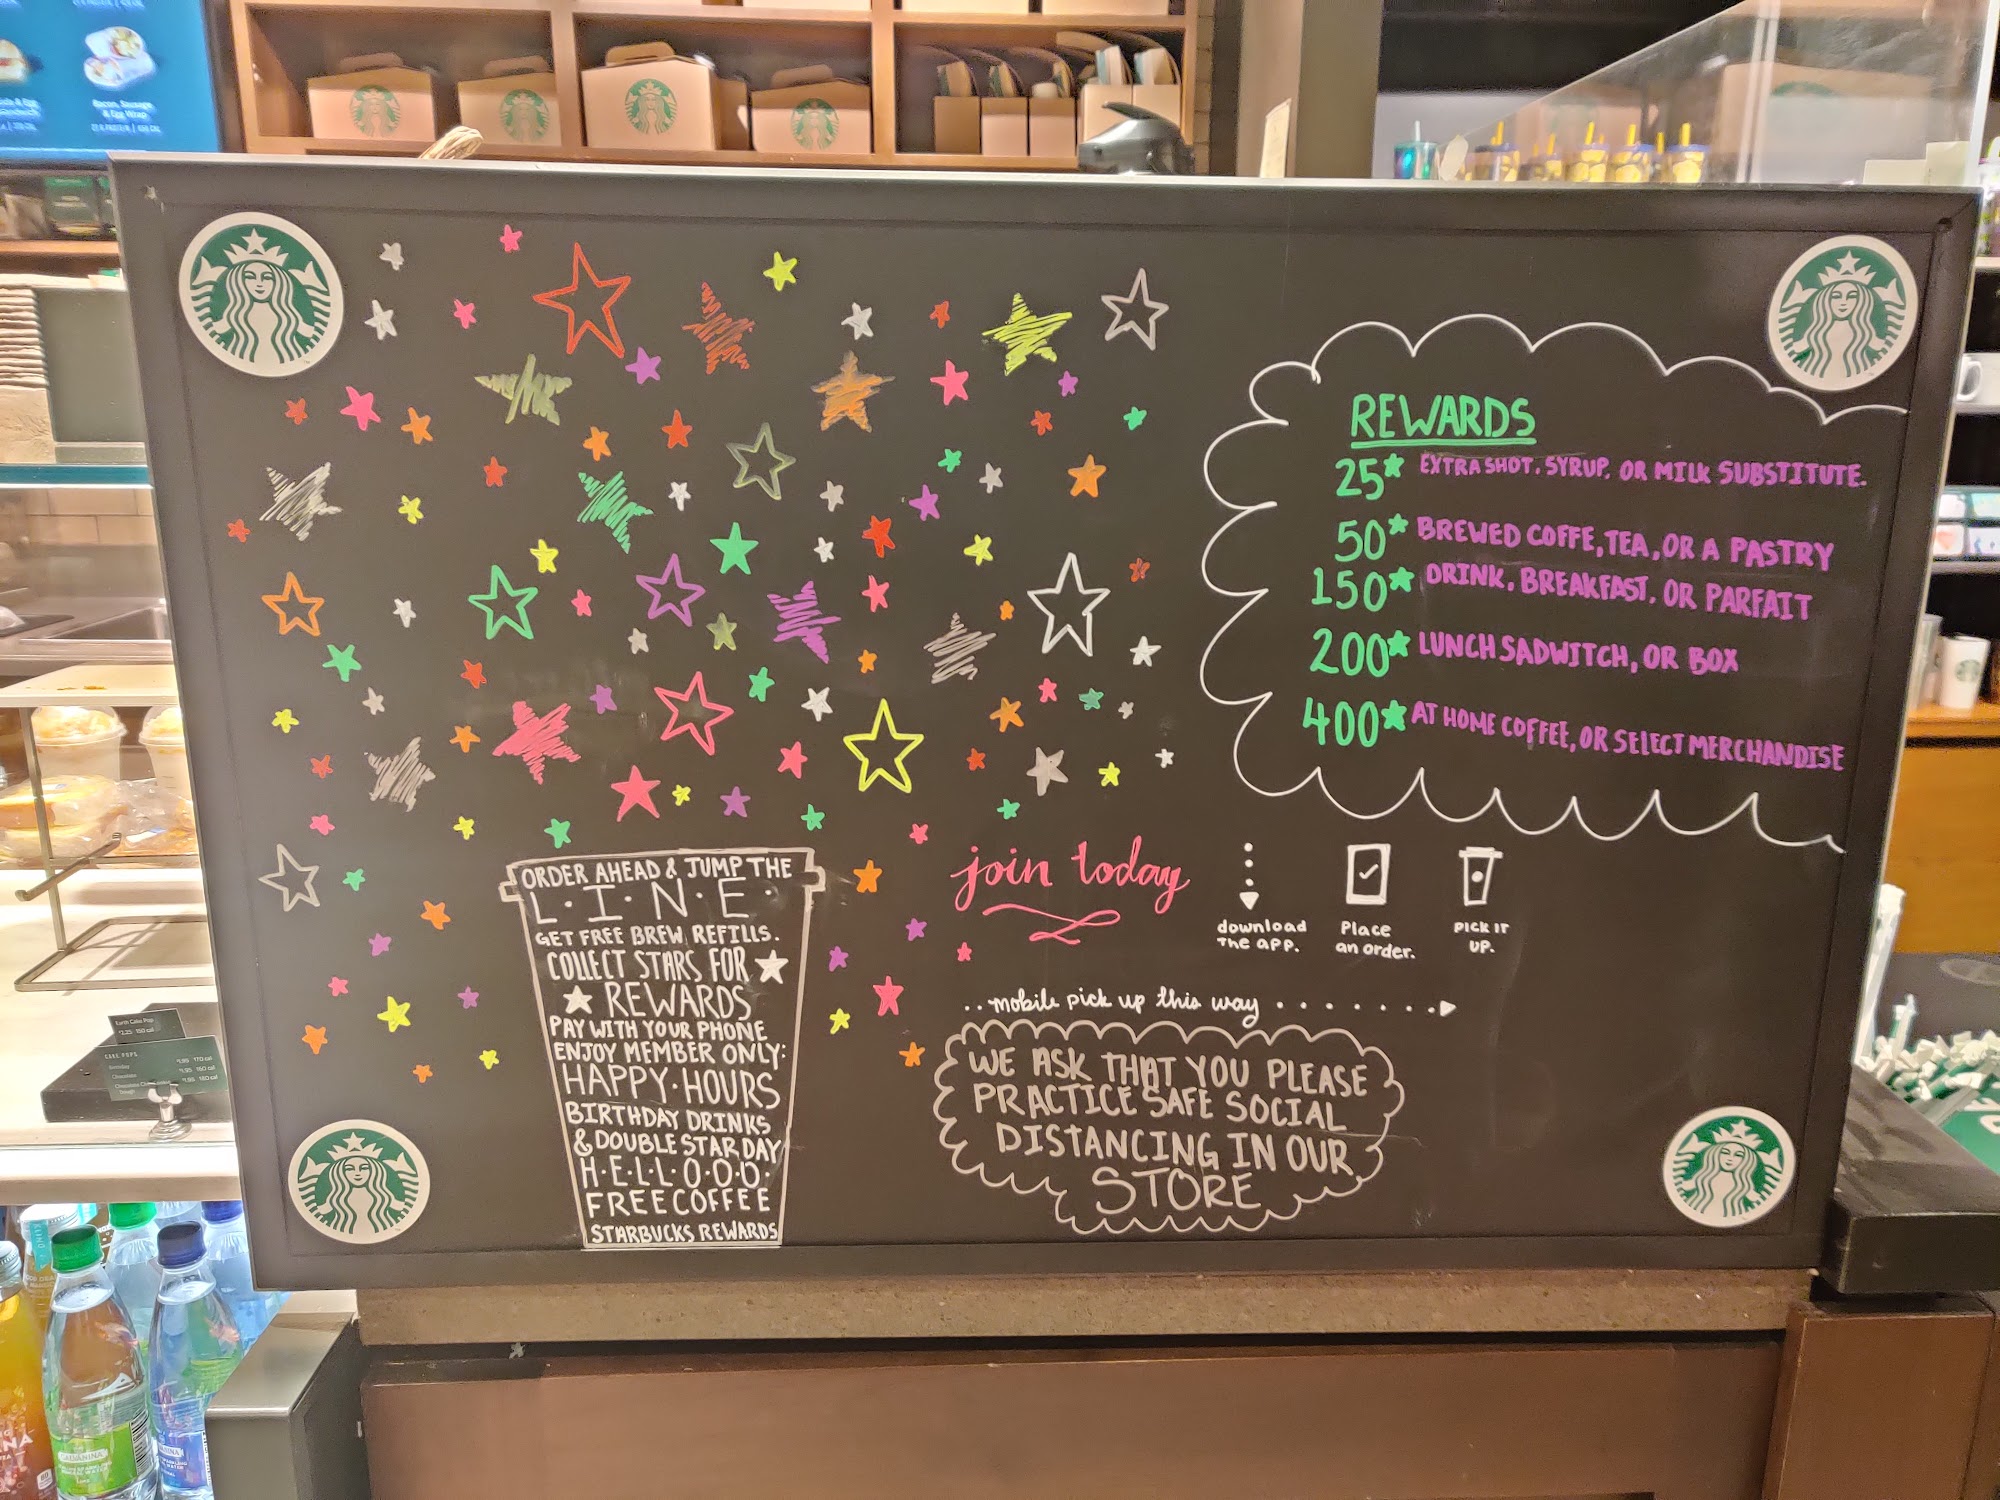 Bacon, Sausage
& Egg Wrap
REWARDS
25★ EXTRA SHOT, SYRUP, OR MILK SUBSTITUTE.
50★ BREWED COFFE, TEA, OR A PASTRY
150★ DRINK, BREAKFAST, OR PARFAIT
200★ LUNCH SADWITCH, OR BOX
400★ AT HOME COFFEE, OR SELECT MERCHANDISE
ORDER AHEAD & JUMP THE
L·I·N·E·
GET FREE BREW REFILLS.
COLLECT STARS FOR ★
★ REWARDS
PAY WITH YOUR PHONE
ENJOY MEMBER ONLY:
HAPPY·HOURS
BIRTHDAY DRINKS
& DOUBLE STAR DAY
H·E·L·L·O·O·O·
FREE COFFEE
STARBUCKS REWARDS
join today
download
the app.
Place
an order.
PICK IT
UP.
..mobile pick up this way.......
WE ASK THAT YOU PLEASE
PRACTICE SAFE SOCIAL
DISTANCING IN OUR
STORE
Earth Cake Pop
CAKE POPS
Birthday
Chocolate
GALVANINA